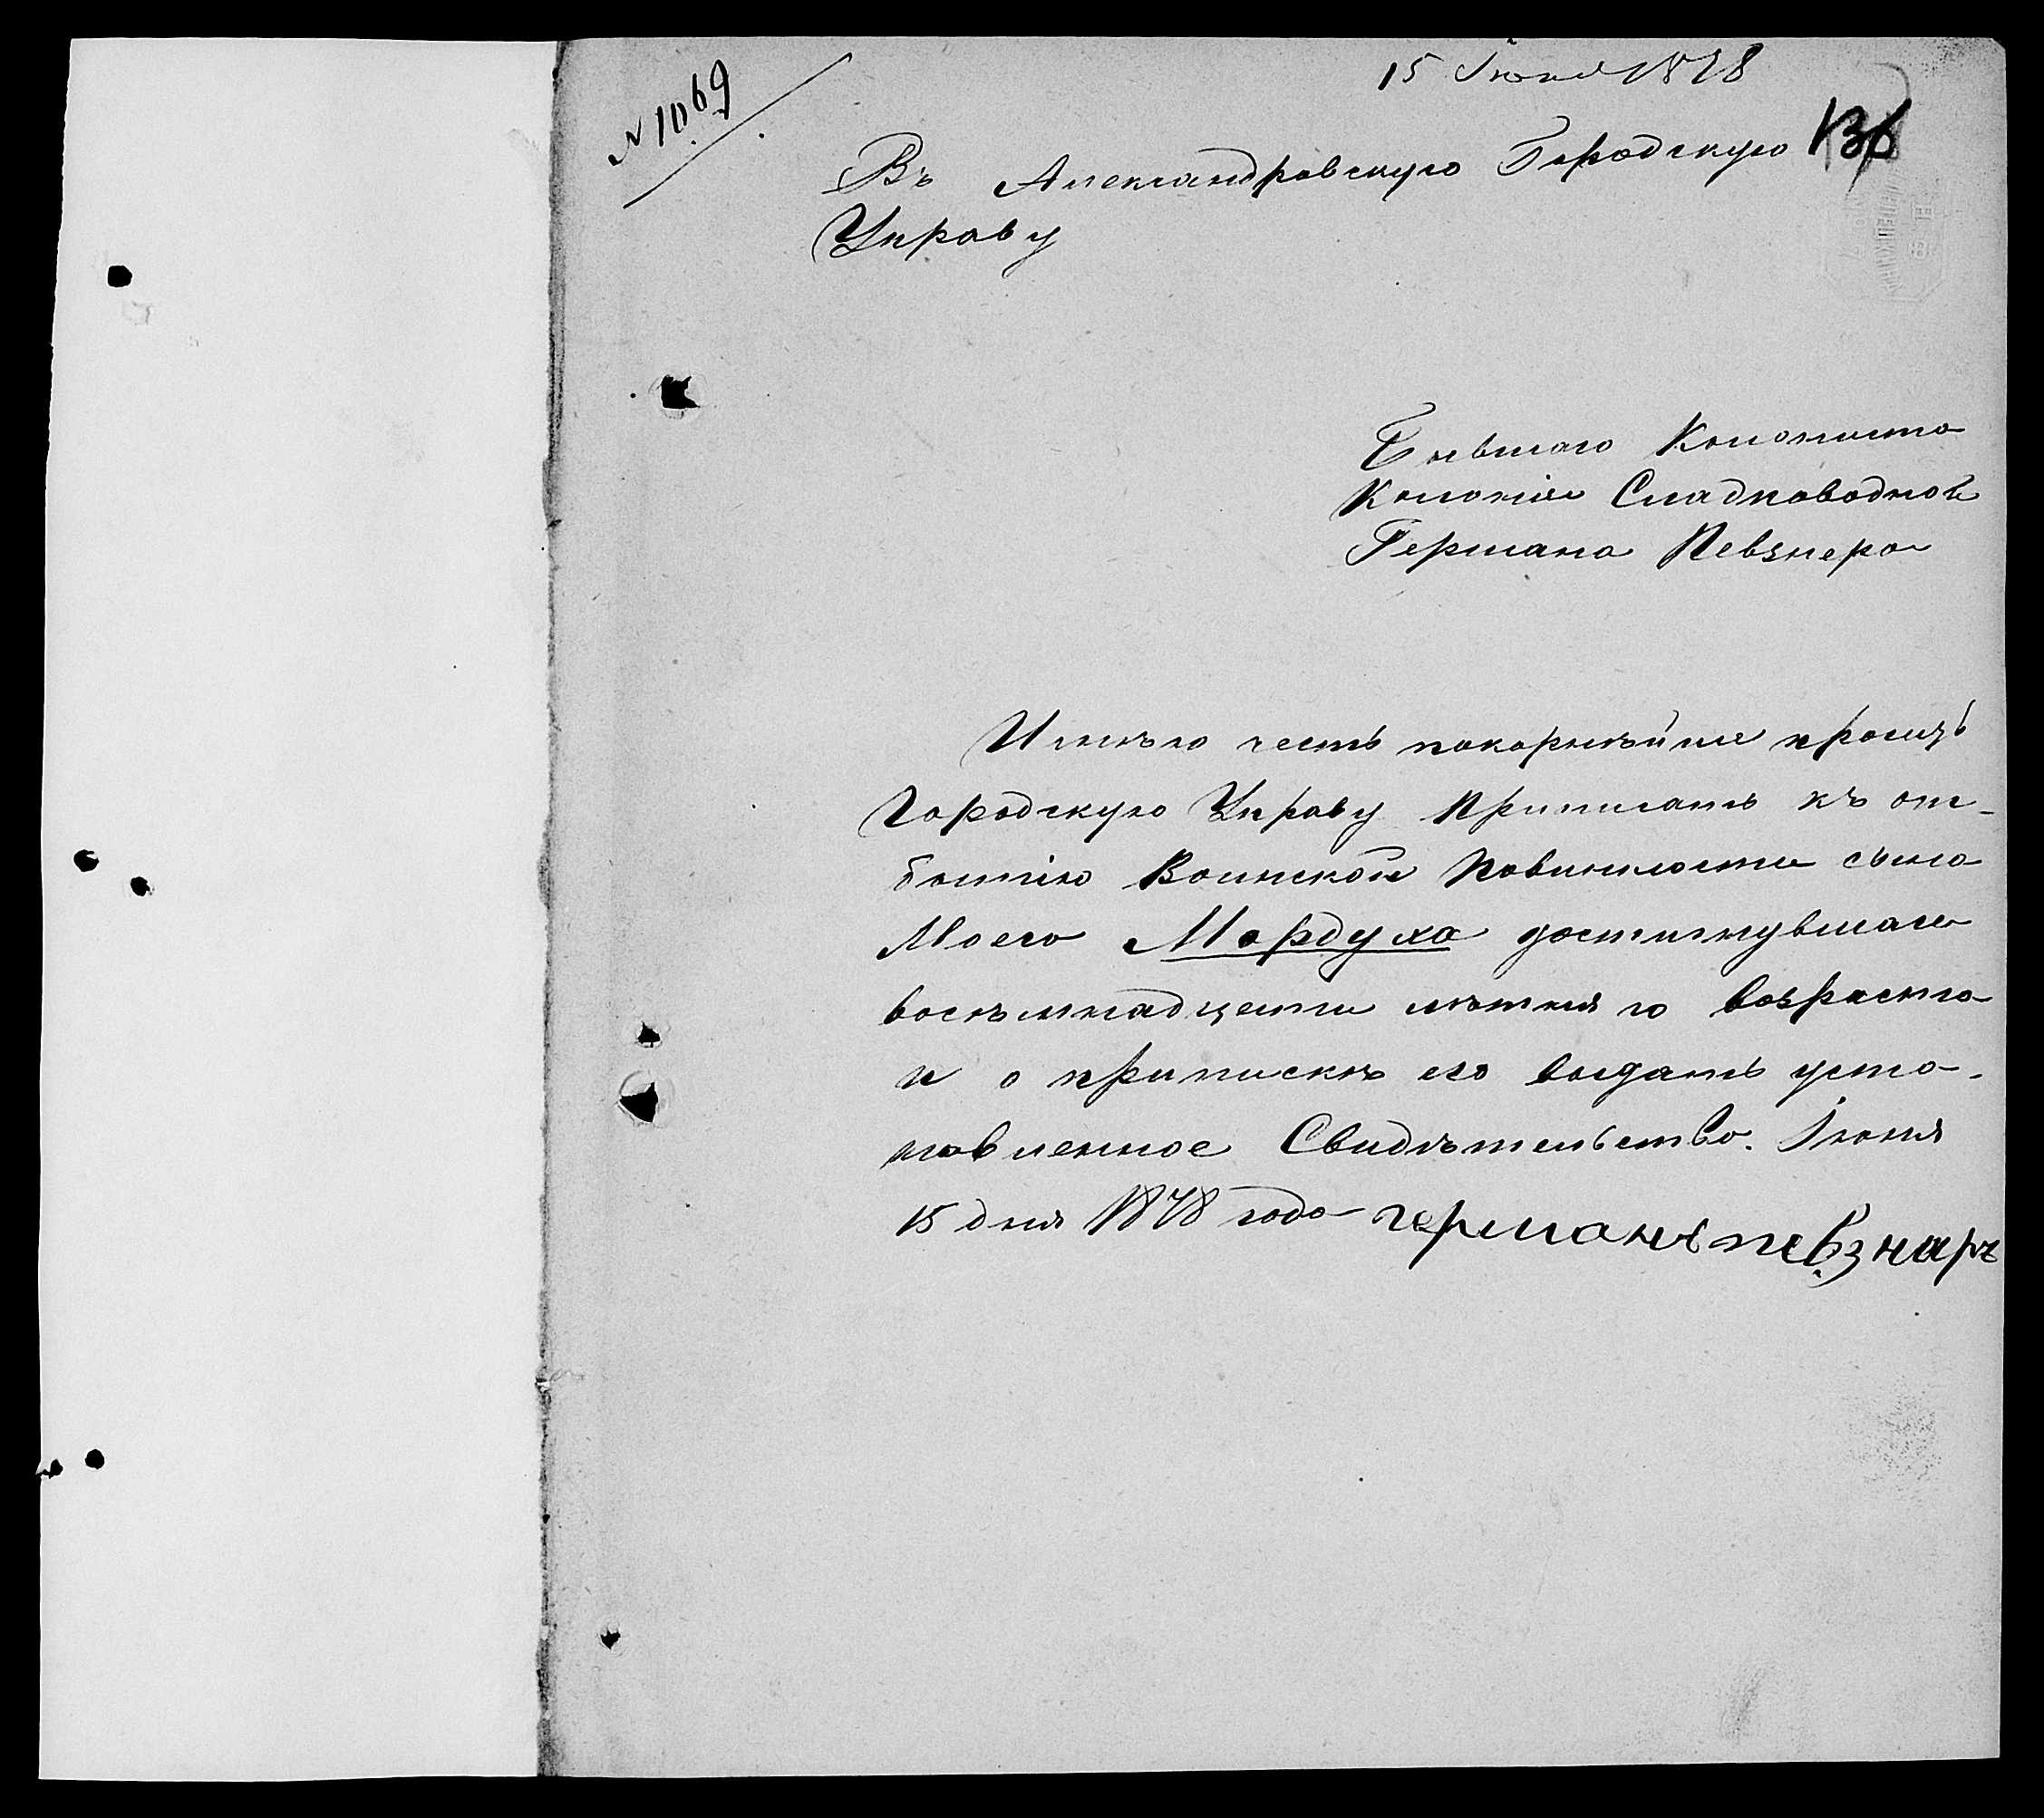 15 Іюня 1878
№ 1069
136
Въ Александровскую Городскую
Управу
Бывшаго Колониста
Колоніи Сладководной
Германа Певзнера
Имѣю честь покорнѣйше просить
Городскую Управу приписать къ от-
бытію Воинской Повинности сына
Моего Мордуха достигнувшаго
восьмнадцати лѣтняго возраста
и о припискѣ его выдать уста-
новленное Свидѣтельство. Іюня
15 дня 1878 года Германъ певзнаръ